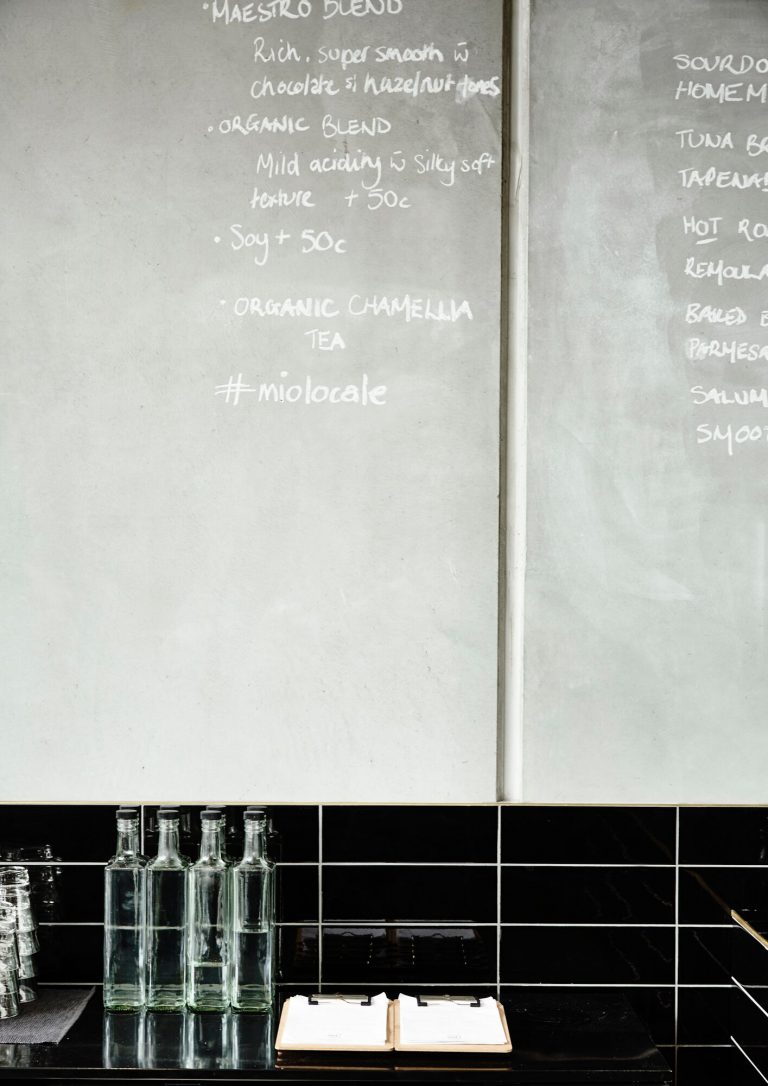 • MAESTRO BLEND
Rich, super smooth w̄
chocolate & hazelnut tones
• ORGANIC BLEND
Mild acidity w̄ silky soft
texture + 50c
• Soy + 50c
• ORGANIC CHAMELLIA
TEA
#miolocale
SOURDO
HOMEM
TUNA BR
TAPENA
HOT RO
REMOULA
BAKED E
PARMESA
SALUM
SMOOT